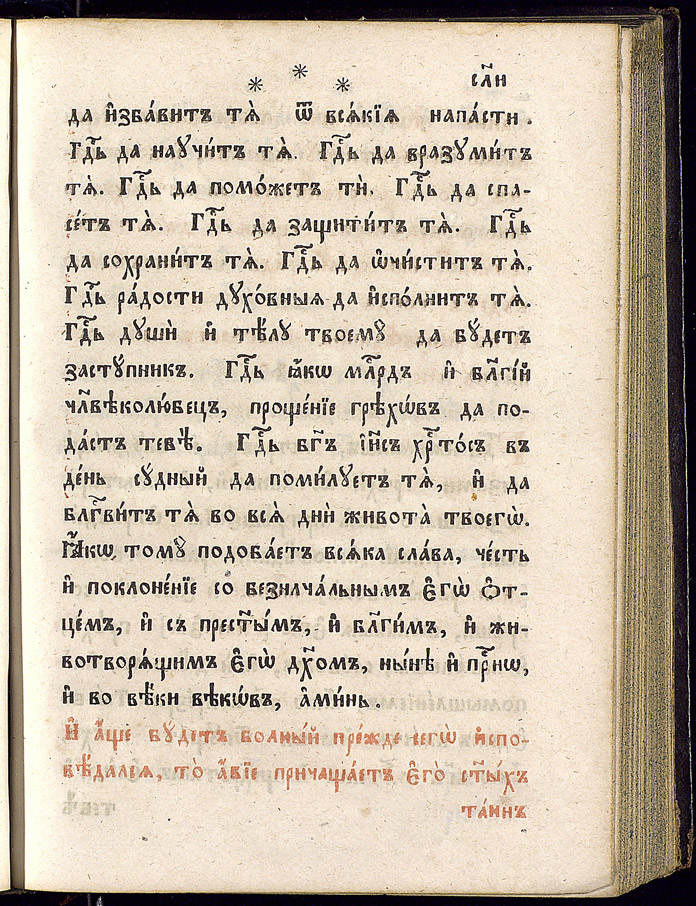 * * * сл҃и
да и҆зба́витъ тѧ̀ ѿ всѧ́кїѧ напа́сти.
Гдⷭ҇ь да научи́тъ тѧ̀. Гдⷭ҇ь да вразꙋми́тъ
тѧ̀. Гдⷭ҇ь да помо́жетъ тѝ. Гдⷭ҇ь да спа-
се́тъ тѧ̀. Гдⷭ҇ь да защити́тъ тѧ̀. Гдⷭ҇ь
да сохрани́тъ тѧ̀. Гдⷭ҇ь да ѡ҆чи́ститъ тѧ̀.
Гдⷭ҇ь ра́дости дꙋхо́вныѧ да и҆спо́лнитъ тѧ̀.
Гдⷭ҇ь дꙋшѝ и҆ тѣ́лꙋ твоемꙋ̀ да бꙋ́детъ
застꙋ́пникъ. Гдⷭ҇ь ꙗ҆́кѡ млⷭ҇рдъ и҆ бл҃гі́й
чл҃вѣколю́бецъ, проще́нїе грѣхѡ́въ да по-
да́стъ тебѣ̀. Гдⷭ҇ь бг҃ъ і҆и҃съ хрⷭ҇то́съ въ
де́нь сꙋ́дный да поми́лꙋетъ тѧ̀, и҆ да
блгⷭ҇ви́тъ тѧ̀ во всѧ̀ днѝ живота̀ твоегѡ̀.
Ꙗ҆́кѡ томꙋ̀ подоба́етъ всѧ́ка сла́ва, че́сть
и҆ поклоне́нїе со безнача́льнымъ є҆гѡ̀ ѻ҆т-
це́мъ, и҆ съ прест҃ы́мъ, и҆ бл҃ги́мъ, и҆ жи-
вотворѧ́щимъ є҆гѡ̀ дх҃омъ, ны́нѣ и҆ прⷭ҇нѡ,
и҆ во вѣ́ки вѣкѡ́въ, а҆ми́нь.
И҆ а҆́ще бꙋ́детъ болны́й пре́жде сегѡ̀ и҆спо-
вѣ́далсѧ, то̀ а҆́бїе причаща́етъ є҆го̀ ст҃ы́хъ
та́инъ